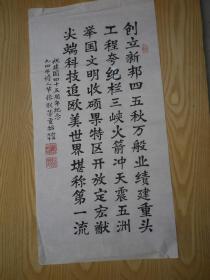 创立新邦四五秋万般业绩建重头
工程夸纪栏三峡火箭冲天震五洲
举国文明收硕果特区开放定宏猷
尖端科技追欧美世界堪称第一流
祝建国四十五周年纪念